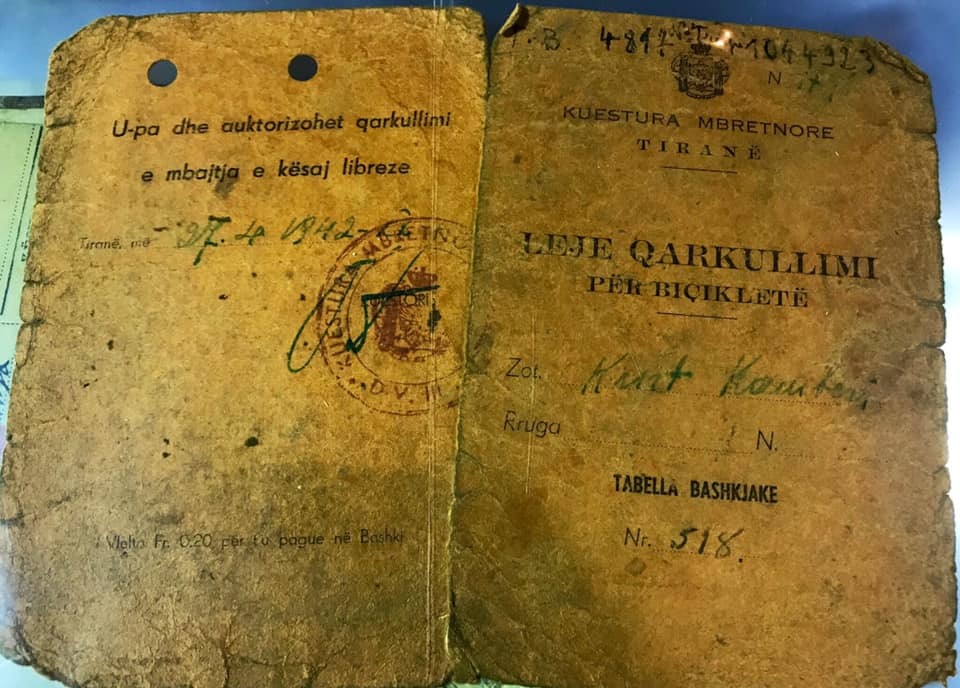 U-pa dhe auktorizohet qarkullimi
e mbajtja e kësaj libreze
Tiranë, më 27.4 1942
KUESTURA MBRETNO
D.V.
Vlefta Fr. 0.20 për t'u pague në Bashki
P.B. 4817 1044923
N
KUESTURA MBRETNORE
TIRANË
LEJE QARKULLIMI
PËR BIÇIKLETË
Zot. Kurt
Rruga N.
TABELLA BASHKJAKE
Nr. 518.